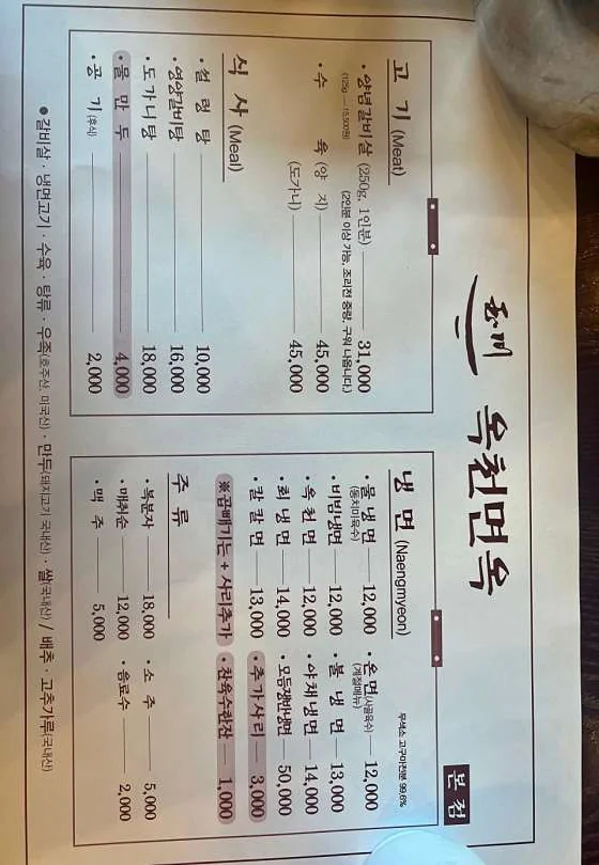 옥천면옥
본 점
고 기 (Meat)
• 양념갈비살 (250g, 1인분) 31,000
(125g — 15,500원) (2인분 이상 가능, 조리전 중량, 구워 나옵니다.)
• 수 육 (양 지) 45,000
(도가니) 45,000
식 사 (Meal)
• 설 렁 탕 10,000
• 영양갈비탕 16,000
• 도가니탕 18,000
• 물 만 두 4,000
• 공 기 (후식) 2,000
냉 면 (Naengmyeon)
무색소 고구마전분 99.6%
• 물 냉 면 12,000 • 온 면 (사골육수) 12,000
(동치미육수) (계절메뉴)
• 비빔냉면 12,000 • 불 냉 면 13,000
• 옥 천 면 12,000 • 야채냉면 14,000
• 회 냉 면 14,000 • 모듬쟁반냉면 50,000
• 칼 칼 면 13,000 • 추가사리 3,000
※곱빼기는 + 사리추가 • 찬육수한잔 1,000
주 류
• 복분자 18,000 • 소 주 5,000
• 매취순 12,000 • 음료수 2,000
• 맥 주 5,000
● 갈비살 · 냉면고기 · 수육 · 탕류 · 우족(호주산, 미국산) · 만두(돼지고기 국내산) · 쌀(국내산) / 배추 · 고추가루(국내산)